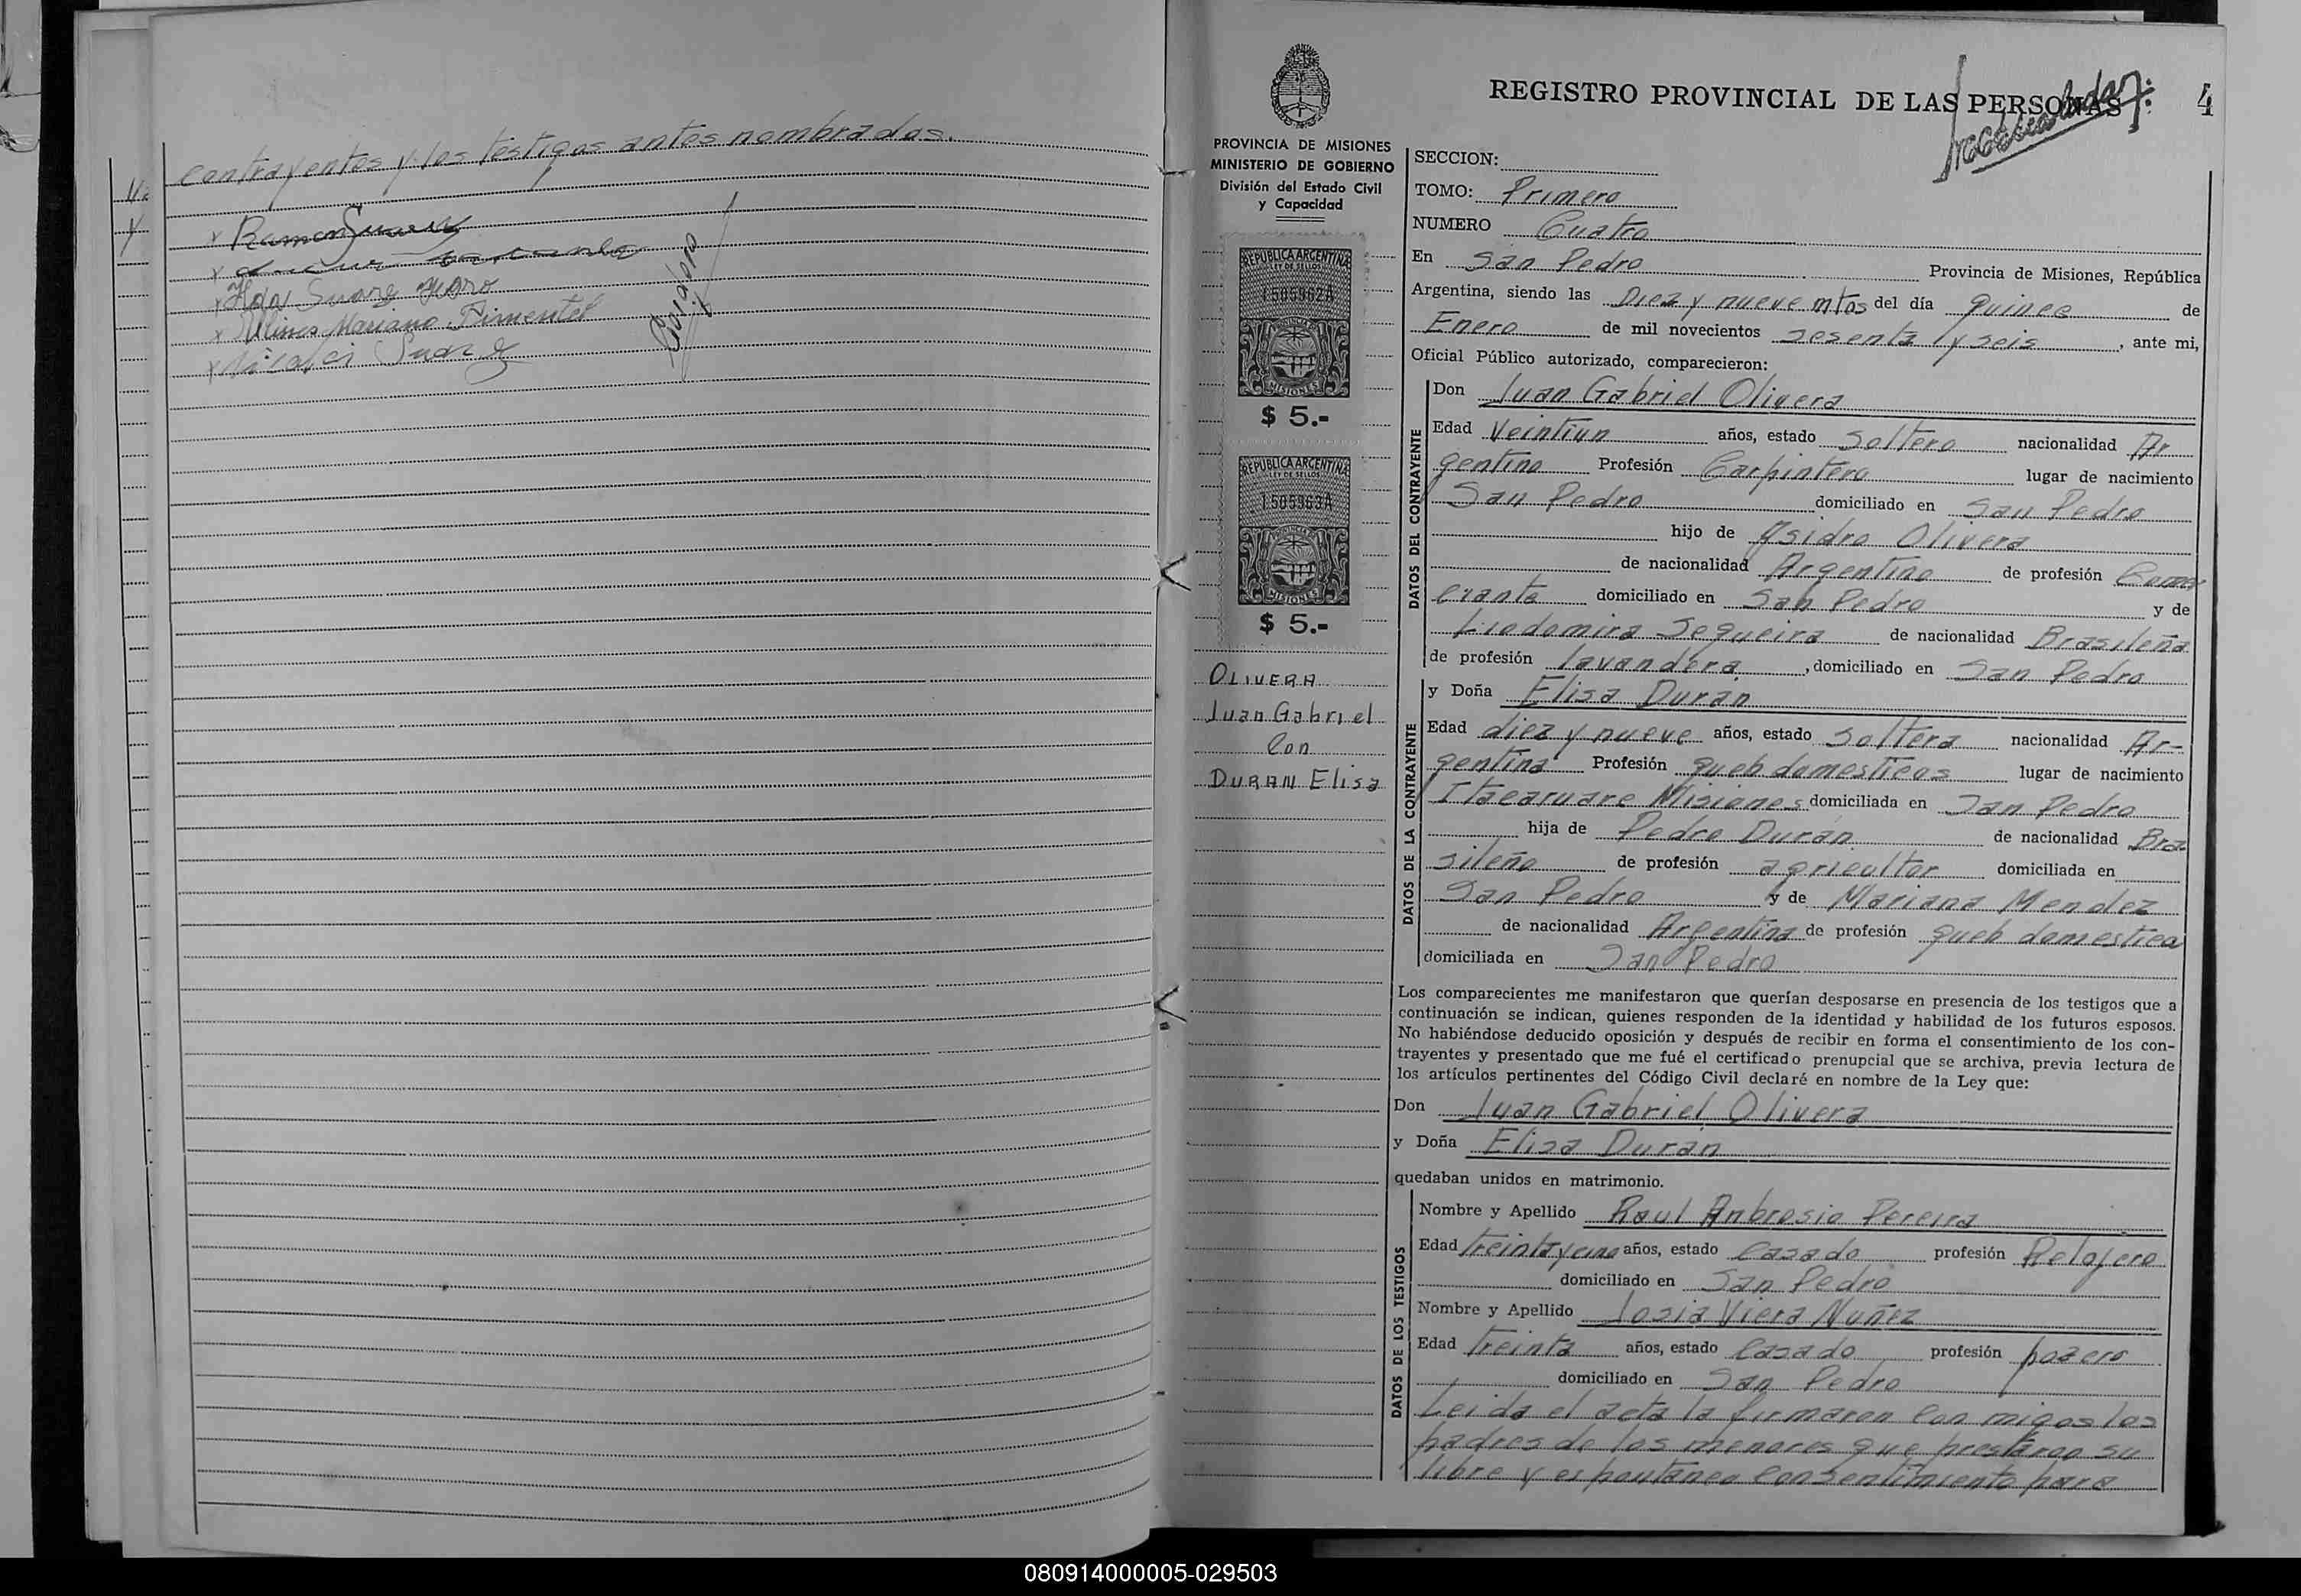 contrayentes y los testigos antes nombrados.
Ramon Suarez
Ilda Suarez
Ulises Mariano Pimentel
Suarez
REGISTRO PROVINCIAL DE LAS PERSONAS
4
PROVINCIA DE MISIONES
MINISTERIO DE GOBIERNO
División del Estado Civil
y Capacidad
REPUBLICA ARGENTINA
LEY DE SELLOS
1505962A
MISIONES
$ 5.-
REPUBLICA ARGENTINA
LEY DE SELLOS
1505963A
MISIONES
$ 5.-
OLIVERA
Juan Gabriel
Con
DURAN Elisa
SECCION:
TOMO: Primero
NUMERO Cuatro
En San Pedro Provincia de Misiones, República
Argentina, siendo las Diez y nueve mtos del día quince de
Enero de mil novecientos sesenta y seis, ante mi,
Oficial Público autorizado, comparecieron:
DATOS DEL CONTRAYENTE
Don Juan Gabriel Olivera
Edad Veintiun años, estado soltero nacionalidad Ar
gentino Profesión Carpintero lugar de nacimiento
San Pedro domiciliado en San Pedro
hijo de Ysidro Olivera
de nacionalidad Argentino de profesión Comer
ciante domiciliado en San Pedro y de
Liodomira Sequeira de nacionalidad Brasileña
de profesión lavandera, domiciliado en San Pedro
DATOS DE LA CONTRAYENTE
y Doña Elisa Duran
Edad diez y nueve años, estado soltera nacionalidad Ar-
gentina Profesión queh domesticos lugar de nacimiento
Itacaruare Misiones domiciliada en San Pedro
hija de Pedro Durán de nacionalidad Bra
sileño de profesión agricultor domiciliada en
San Pedro y de Mariana Mendez
de nacionalidad Argentina de profesión queh domestica
domiciliada en San Pedro
Los comparecientes me manifestaron que querían desposarse en presencia de los testigos que a
continuación se indican, quienes responden de la identidad y habilidad de los futuros esposos.
No habiéndose deducido oposición y después de recibir en forma el consentimiento de los con-
trayentes y presentado que me fué el certificado prenupcial que se archiva, previa lectura de
los artículos pertinentes del Código Civil declaré en nombre de la Ley que:
Don Juan Gabriel Olivera
y Doña Elisa Duran
quedaban unidos en matrimonio.
DATOS DE LOS TESTIGOS
Nombre y Apellido Raul Ambrosio Pereira
Edad treinta y cinco años, estado Casado profesión Relojero
domiciliado en San Pedro
Nombre y Apellido Josia Viera Nuñez
Edad treinta años, estado Casado profesión pozero
domiciliado en San Pedro
Leida el acta la firmaron con migos los
padres de los menores que prestaron su
libre y espontaneo consentimiento para
080914000005-029503